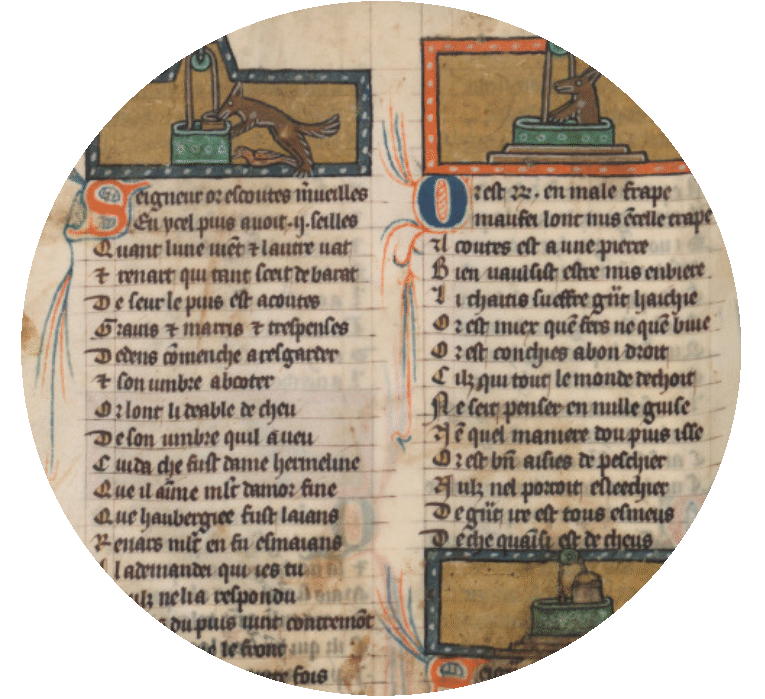 Seigneur or escoutes m̃ueilles
En ycel puis auoit .ij. seilles
Quant lune uiẽt ⁊ lautre uat
⁊ renart qui tant sceit de barat
De seur le puis est acoutes
Grains ⁊ marris ⁊ trespenses
Dedens cõmenche a resgarder
⁊ son umbre abooter
Or lont li deable decheu
De son umbre quil a ueu
Cuida che fust dame hermeline
Que il aĩme ml̃t damor fine
Que haubergiee fust laians
Renars ml̃t en fu esmaians
l lademandei qui ies tu
ulz ne lia respondu
du puis uiñt contremõt
le front
fois
Or est en male trape
maufei lont mis ẽ celle trape
Il coutes est a une pierre
Bien uausist estre mis en biere
Li chaitis sueffre g̃nt haichie
Or est miex quẽ fers ne quẽ buie
Or est conchies a bon droit
Cilz qui tout le monde dechoit
Ne seit penser en nulle guise
En quel maniere dou puis isse
Or est bñ aisies de peschier
Nulz nel porroit esleechier
De g̃nt ire est tous esmeus
De che quainsi est decheus